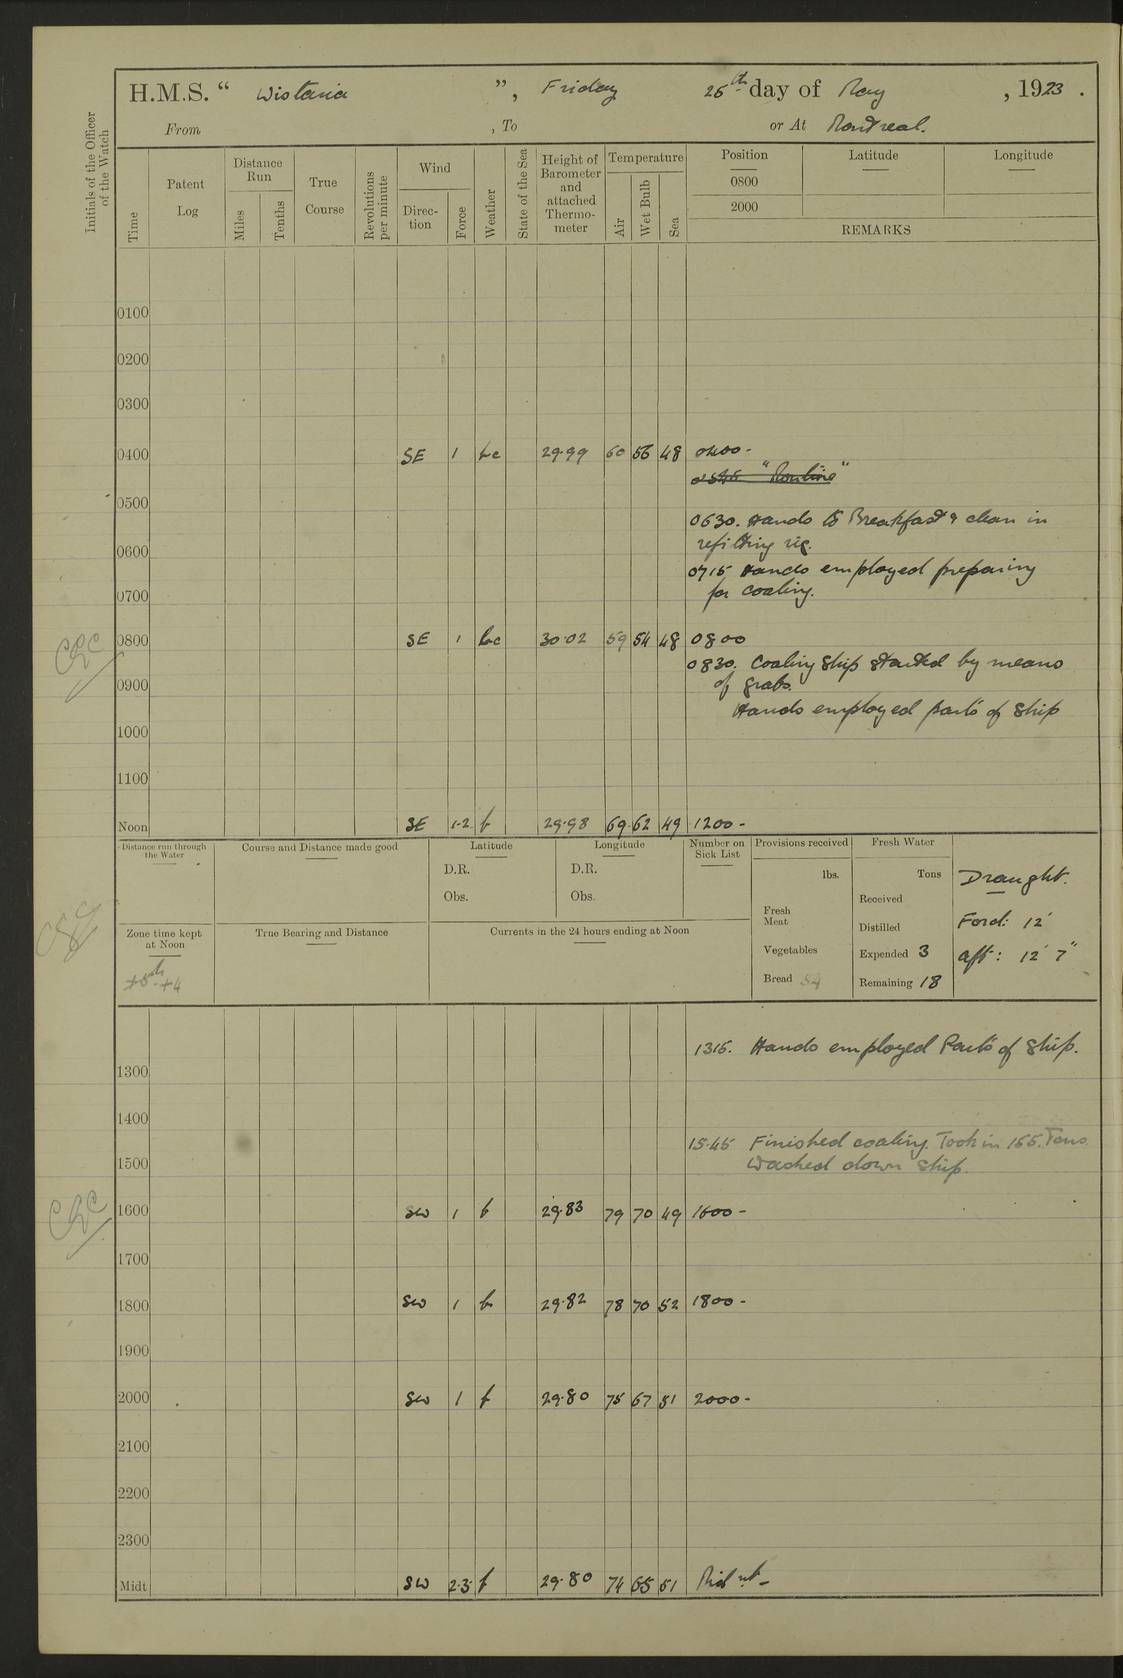 H.M.S. “ Wistaria ”, Friday 25th day of May , 1923 .
From , To or At Montreal.
Initials of the Officer of the Watch
Time
Patent Log
Distance Run
Miles
Tenths
True Course
Revolutions per minute
Wind
Direc- tion
Force
Weather
State of the Sea
Height of Barometer and attached Thermo- meter
Temperature
Air
Wet Bulb
Sea
Position Latitude Longitude
0800
2000
REMARKS
0100
0200
0300
0400 SE 1 bc 29.99 60 56 48 0400 -
0545 "Routine"
0500
0630. Hands to Breakfast & clean in
refitting rig.
0600
0715 Hands employed preparing
for coaling.
0700
0800 SE 1 bc 30.02 59 54 48 0800
0830. Coaling Ship started by means
of grabs.
0900
Hands employed parts of ship
1000
1100
Noon SE 1-2 b 29.98 69 62 49 1200 -
Distance run through the Water
Course and Distance made good
Latitude
D.R.
Obs.
Longitude
D.R.
Obs.
Number on Sick List
Provisions received
lbs.
Fresh Meat
Vegetables
Bread 84
Fresh Water
Tons
Received
Distilled
Expended 3
Remaining 18
Draught.
Ford: 12'
aft: 12' 7"
Zone time kept at Noon
+4
True Bearing and Distance
Currents in the 24 hours ending at Noon
1315. Hands employed Parts of Ship.
1300
1400
15.45 Finished coaling. Took in 155. Tons
Washed down ship.
1500
1600 SW 1 b 29.83 79 70 49 1600 -
1700
1800 SW 1 b 29.82 78 70 52 1800 -
1900
2000 SW 1 b 29.80 75 67 51 2000 -
2100
2200
2300
Midt SW 2.3 b 29.80 74 65 51 Mid nt -